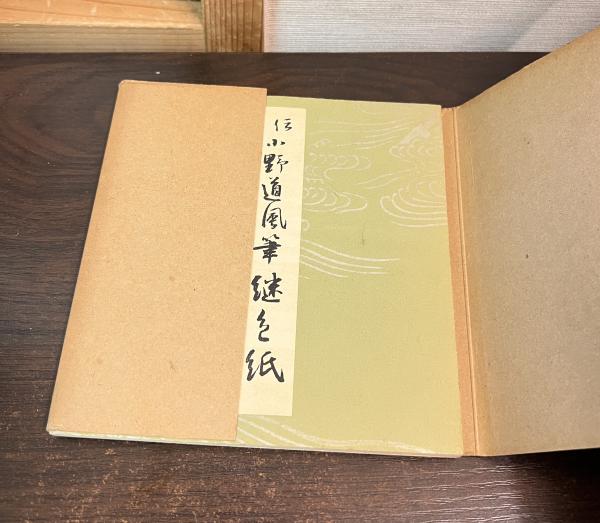 伝小野道風筆 継色紙